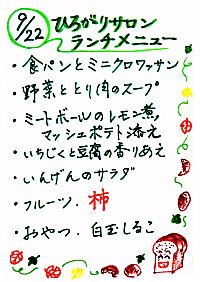 9/22 ひろがりサロン
ランチメニュー
・食パンとミニクロワッサン
・野菜ととり肉のスープ
・ミートボールのレモン煮,
マッシュポテト添え
・いちじくと豆腐の香りあえ
・いんげんのサラダ
・フルーツ. 柿
・おやつ. 白玉しるこ